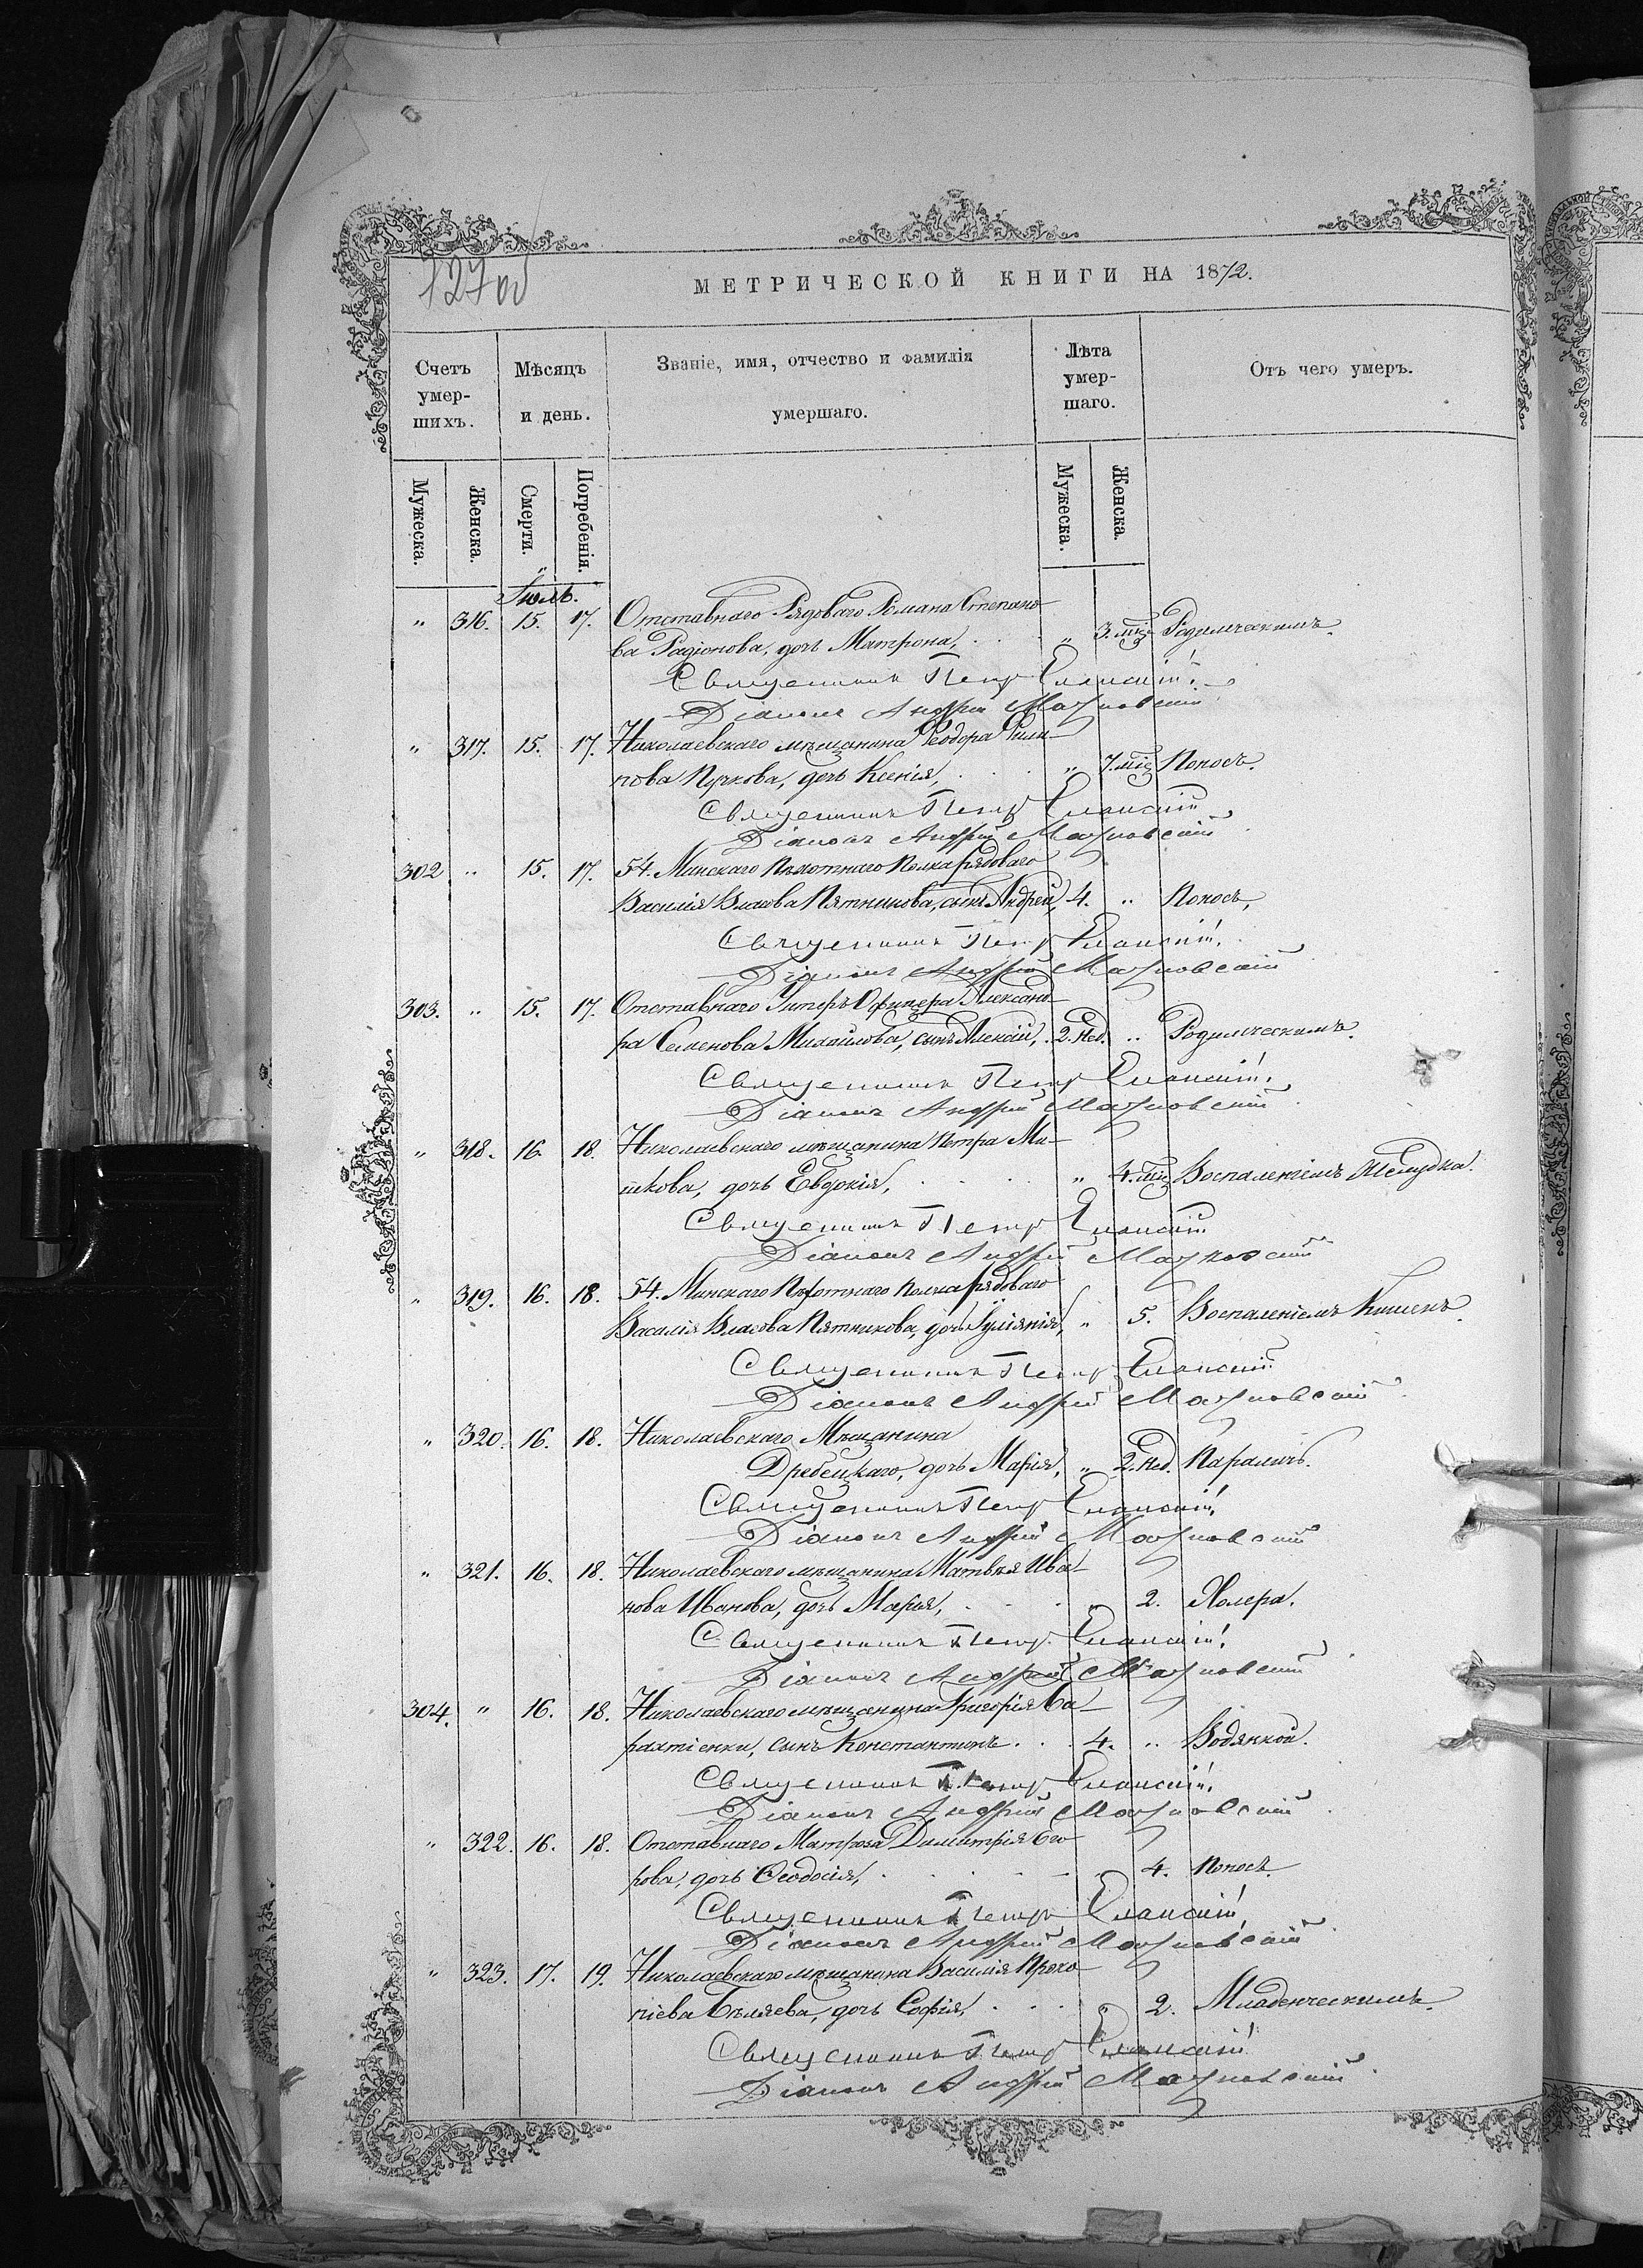 127 об
МЕТРИЧЕСКОЙ КНИГИ НА 1872.
Счетъ умер-шихъ. Мѣсяцъ и день. Званіе, имя, отчество и фамилія умершаго. Лѣта умер-шаго. Отъ чего умеръ.
Мужеска. Женска. Смерти. Погребенія. Мужеска. Женска.
Іюль.
" 316. 15. 17. Отставнаго Рядоваго Романа Степано-
ва Радіонова, дочь Матрона, " 3. мѣс Родимческимъ.
Священникъ Петр Еланскій.
Діаконъ Андрей
" 317. 15. 17. Николаевскаго мѣщанина Ѳеодора Фили-
пова Пуркова, дочь Ксенія, " 7. мѣс Поносъ.
Священникъ Петр Еланскій
Діаконъ Андрей
302 " 15. 17. 54. Минскаго Пѣхотнаго Полка рядоваго
Василія Власова Пятникова, сынъ Андрей, 4. " Поносъ,
Священникъ Петр Еланскій.
Діаконъ Андрей
303. " 15. 17. Отставнаго Унтеръ Офицера Александ-
ра Семенова Михайлова, сынъ Алексій, 2. Нед. " Родимческимъ.
Священникъ Петр Еланскій.
Діаконъ Андрей
" 318. 16. 18. Николаевскаго мѣщанина Петра Ми-
шкова, дочь Евдокія, " 4. мѣс Воспаленіемъ Желудка.
Священникъ Петр Еланскій
Діаконъ Андрей
" 319. 16. 18. 54. Минскаго Пѣхотнаго Полка рядоваго
Василія Власова Пятникова, дочь Іуліянія, " 5. Воспаленіемъ Кишекъ.
Священникъ Петр Еланскій
Діаконъ Андрей
" 320. 16. 18. Николаевскаго Мѣщанина
Дребецкаго, дочь Марія, " 2. Нед. Параличъ.
Священникъ Петр Еланскій
Діаконъ Андрей
" 321. 16. 18. Николаевскаго мѣщанина Матвѣя Ива-
нова Иванова, дочь Марія, " 2. Холера.
Священникъ Петр Еланскій.
Діаконъ Андрей
304. " 16. 18. Николаевскаго мѣщанина Григорія Ва-
рахтіенки, сынъ Константинъ 4. " Водянкой.
Священникъ Петр Еланскій.
Діаконъ Андрей
" 322. 16. 18. Отставнаго Матроза Димитрія Его-
рова, дочь Ѳеодосія, 4. Поносъ.
Священникъ Петръ Еланскій
Діаконъ Андрей
" 323. 17. 19. Николаевскаго мѣщанина Василія Проко-
піева Бѣляева, дочь Софія, 2. Младенческимъ.
Священникъ Петр Еланскій
Діаконъ Андрей